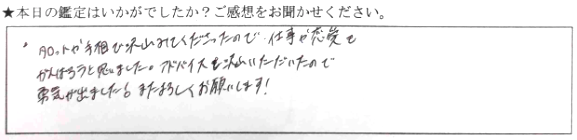 ★本日の鑑定はいかがでしたか？ご感想をお聞かせください。
タロットや手相で沢山みてくださったので、仕事や恋愛も
がんばろうと思いました。アドバイスも沢山いただいたので
勇気が出ました！またよろしくお願いします！